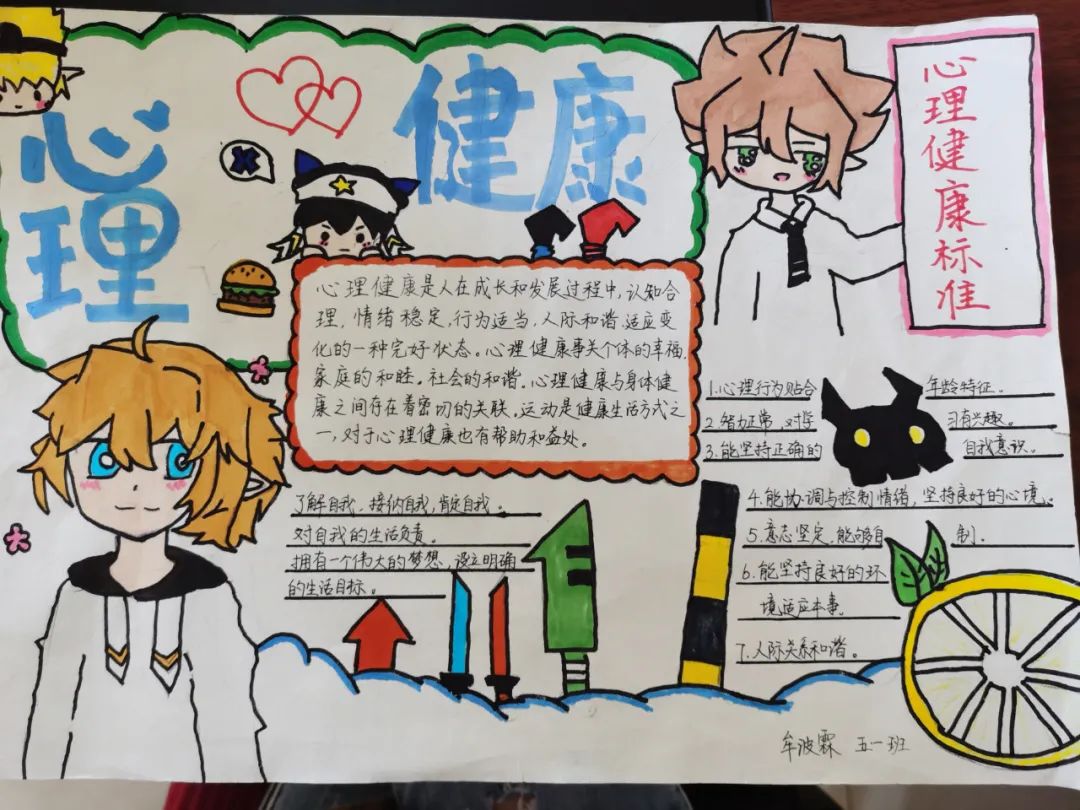 心理
健康
心理健康标准
心理健康是人在成长和发展过程中,认知合
理,情绪稳定,行为适当,人际和谐,适应变
化的一种完好状态。心理健康事关个体的幸福,
家庭的和睦,社会的和谐。心理健康与身体健
康之间存在着密切的关联。运动是健康生活方式之
一,对于心理健康也有帮助和益处。
了解自我,接纳自我,肯定自我。
对自我的生活负责。
拥有一个伟大的梦想,设立明确
的生活目标。
1.心理行为贴合 年龄特征。
2.智力正常,对学 习有兴趣。
3.能坚持正确的 自我意识。
4.能协调与控制情绪,坚持良好的心境。
5.意志坚定,能够自 制。
6.能坚持良好的环
境适应本事。
7.人际关系和谐。
牟波霖 五一班